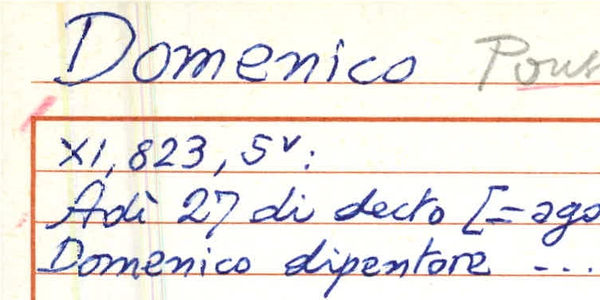 Domenico
XI, 823, 5v:
Adì 27 di decto [=ago
Domenico dipentore ---